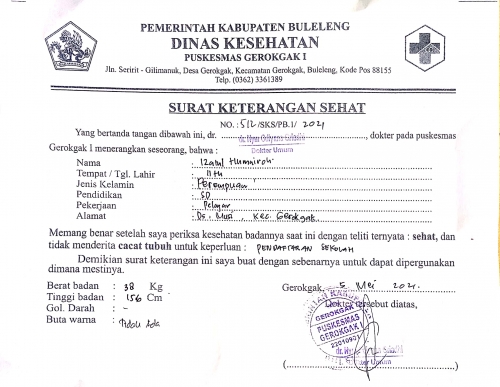 PEMERINTAH KABUPATEN BULELENG
DINAS KESEHATAN
PUSKESMAS GEROKGAK I
Jln. Seririt - Gilimanuk, Desa Gerokgak, Kecamatan Gerokgak, Buleleng, Kode Pos 88155
Telp. (0362) 3361389
SURAT KETERANGAN SEHAT
NO. : 512 /SKS/PB.1/ 2021
Yang bertanda tangan dibawah ini, dr. , dokter pada puskesmas
Dokter Umum
Gerokgak I menerangkan seseorang, bahwa :
Nama : Izatul
Tempat / Tgl. Lahir : 11 th
Jenis Kelamin : Perempuan
Pendidikan : SD
Pekerjaan : Pelajar
Alamat : Ds. Musi , Kec. Gerokgak
Memang benar setelah saya periksa kesehatan badannya saat ini dengan teliti ternyata : sehat, dan
tidak menderita cacat tubuh untuk keperluan : PENDAFTARAN SEKOLAH
Demikian surat keterangan ini saya buat dengan sebenarnya untuk dapat dipergunakan
dimana mestinya.
Berat badan : 38 Kg
Tinggi badan : 156 Cm
Gol. Darah : -
Buta warna : Tidak Ada
Gerokgak, 5 Mei 2021
Dokter tersebut diatas,
GEROKGAK
PUSKESMAS
GEROKGAK I
Dokter Umum